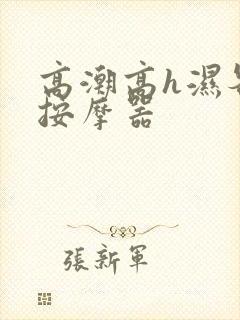 高潮高h濕
按摩器
張新軍